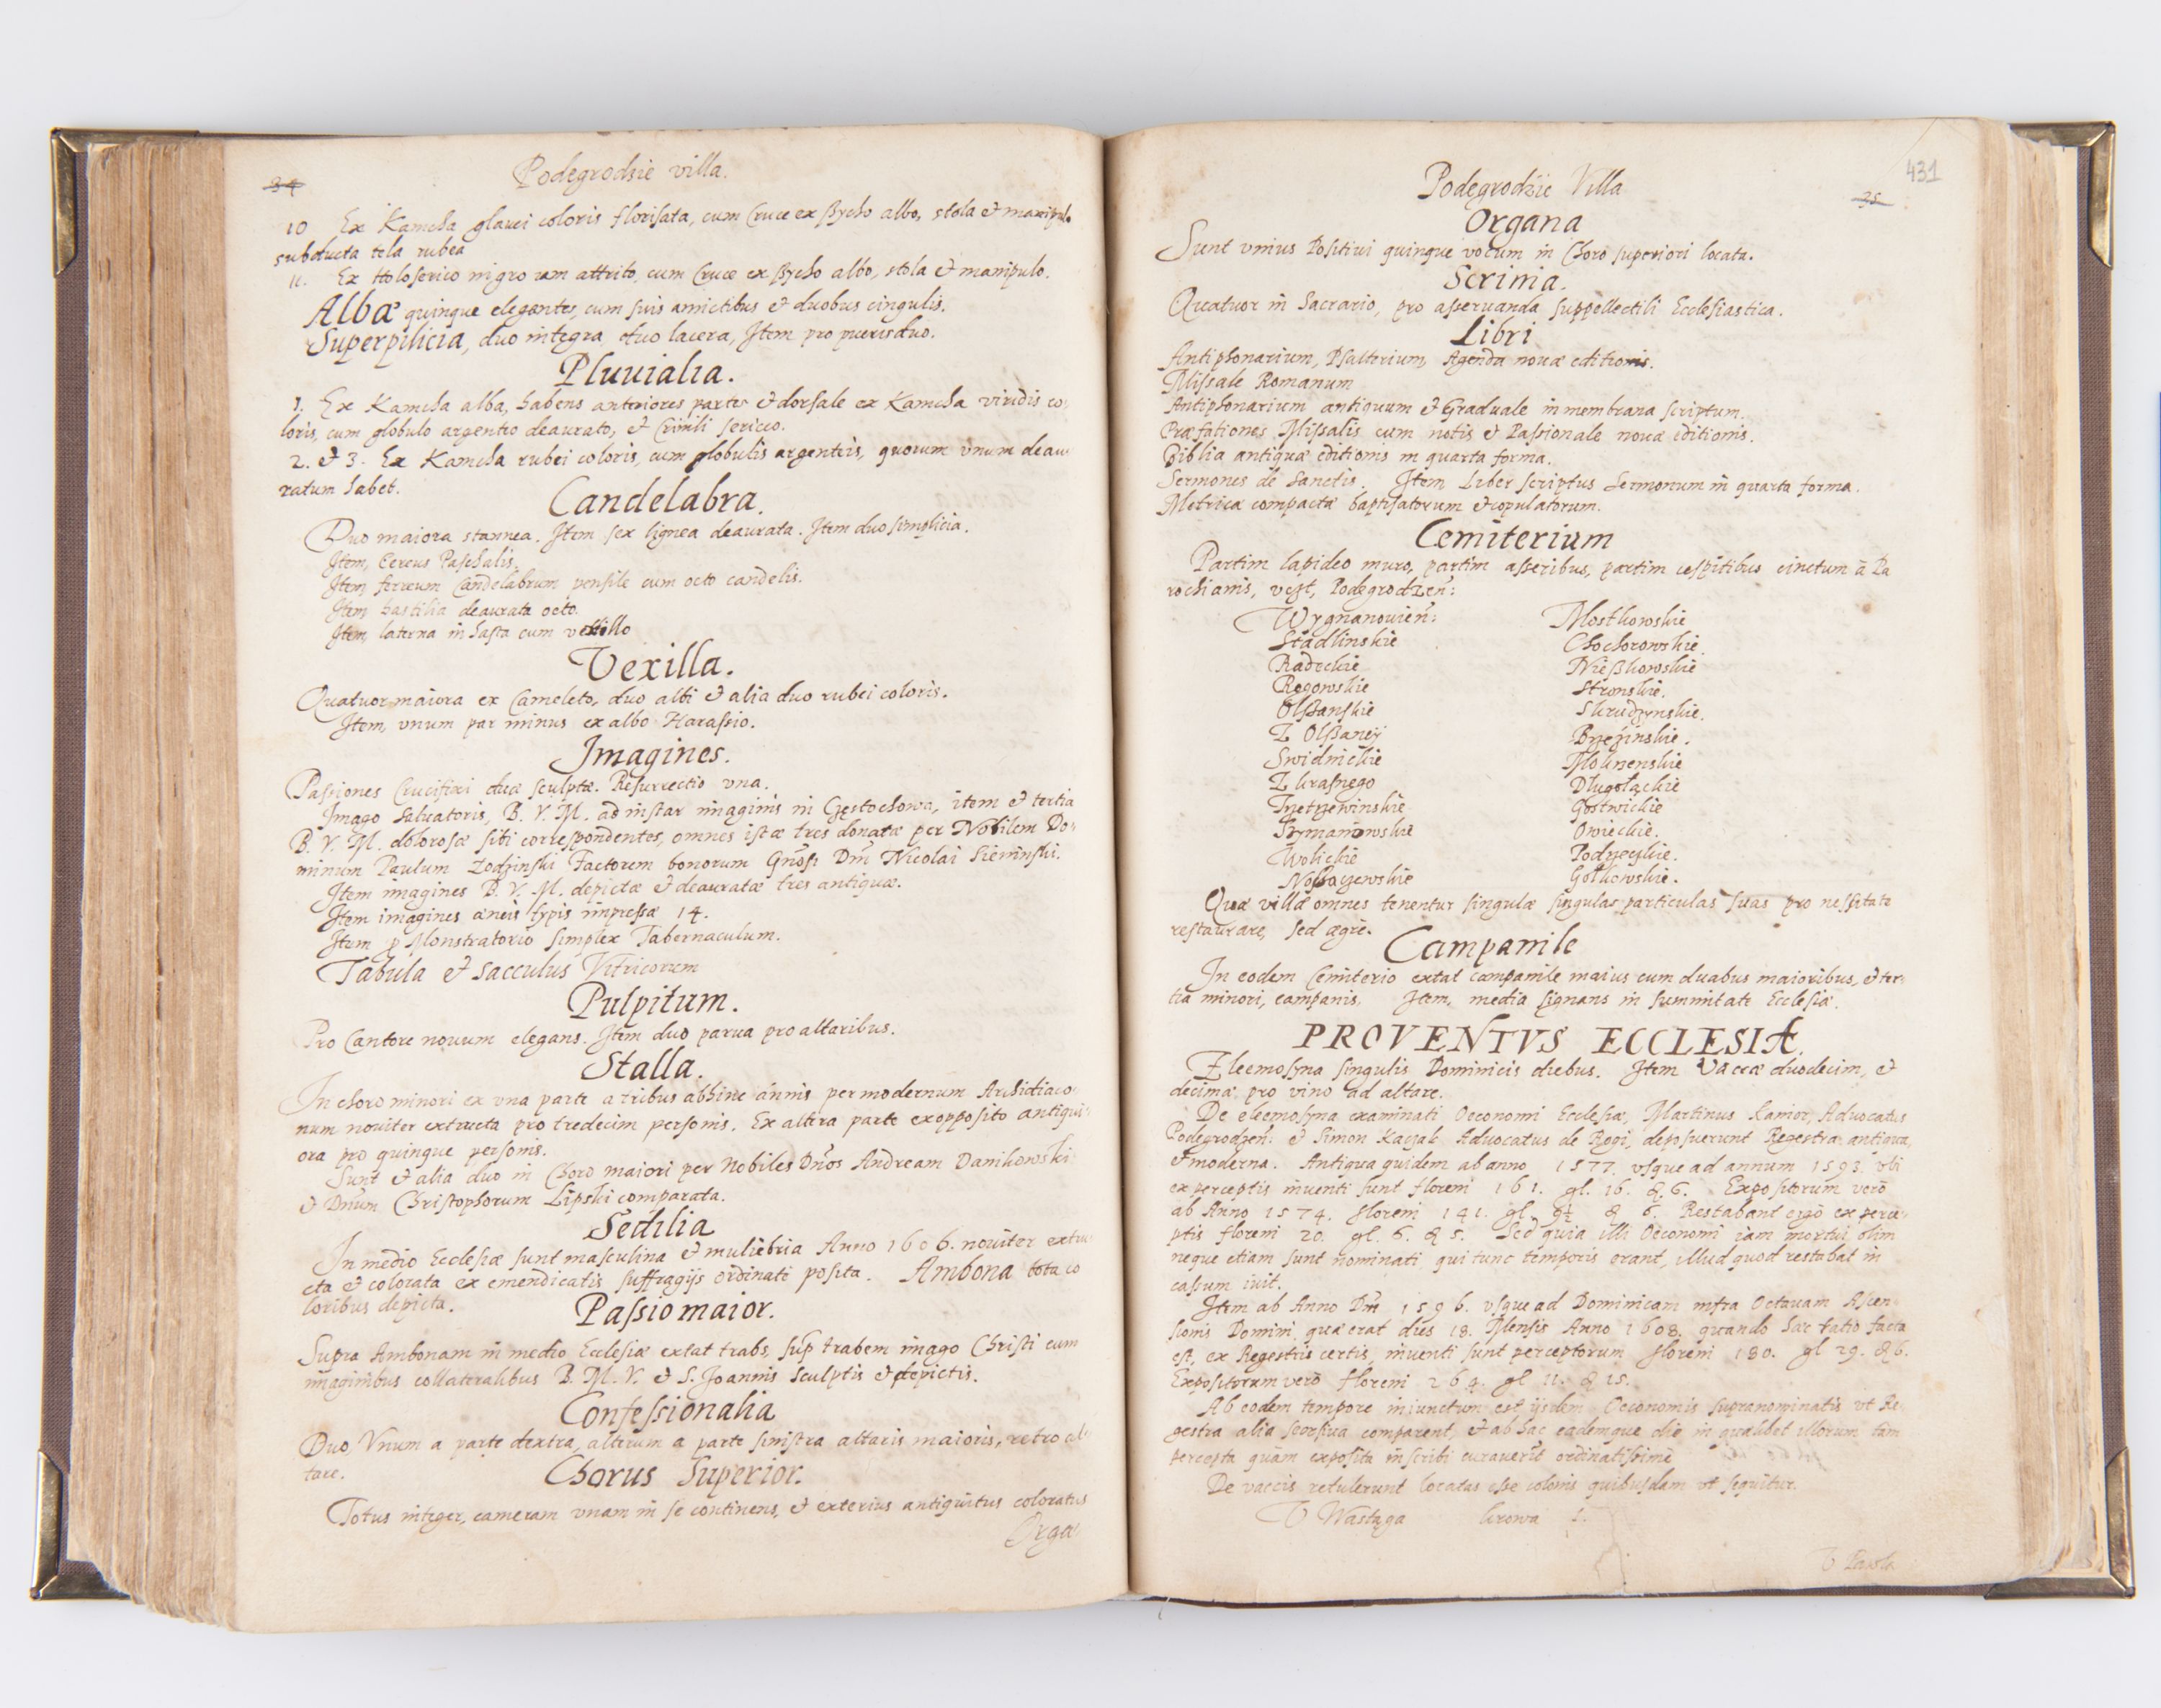 34
Podegrodzie villa.
10 Ex Kamcha glauci coloris florisata, cum Cruce ex ßycho albo, stola et manipulo
subducta tela rubea
11. Ex Holoserico nigro iam attrito, cum Cruce ex ßycho albo, stola et manipulo.
Albæ quinque elegantes, cum suis amictibus et duobus cingulis.
Superpilicia, duo integra, duo lacera, Item pro pueris duo.
Pluuialia.
1. Ex Kamcha alba, habens anteriores partes et dorsale ex Kamcha viridis co,
loris, cum globulo argenteo deaurato, et Crinili sericeo.
2. et 3. Ex Kamcha rubei coloris, cum globulis argenteis, quorum vnum deau
ratum habet.
Candelabra.
Duo maiora stannea. Item sex lignea deaurata. Item duo simplicia.
Item, Cereus Paschalis.
Item, ferreum Candelabrum pensile cum octo candelis.
Item, hastilia deaurata octo.
Item, laterna in hasta cum vexillo
Vexilla.
Quatuor maiora ex Cameleto, duo albi et alia duo rubei coloris.
Item, vnum par minus ex albo Harassio.
Imagines.
Passiones Crucifixi duæ sculptæ. Resurrectio vna.
Imago Saluatoris, B. V. M. ad instar imaginis in Częstochowa, item et tertia
B. V. M. dolorosæ sibi correspondentes, omnes istæ tres donatæ per Nobilem Do,
minum Paulum Zodzinski Factorem bonorum Gnosi Dni Nicolai Sieninski.
Item imagines B. V. M. depictæ et deauratæ tres antiquæ.
Item imagines æneis typis impressæ 14.
Item p Monstratorio simplex Tabernaculum.
Tabula et sacculus Vitricorum
Pulpitum.
Pro Cantore nouum elegans. Item duo parua pro altaribus.
Stalla.
In choro minori ex vna parte a tribus abhinc annis per modernum Archidiaco,
num nouiter extructa pro tredecim personis. Ex altera parte ex opposito antiqui,
ora pro quinque personis.
Sunt et alia duo in Choro maiori per Nobiles Dnos Andream Danikowski
et Dnum Christophorum Lipski comparata.
Sedilia
In medio Ecclesiæ sunt masculina et muliebria Anno 1606. nouiter extru
cta et colorata ex emendicatis suffragijs ordinate posita. Ambona tota co
loribus depicta.
Passio maior.
Supra Ambonam in medio Ecclesiæ extat trabs, sup trabem imago Christi cum
imaginibus collateralibus B. M. V. et S. Joannis sculptis et depictis.
Confessionalia
Duo, Vnum a parte dextra, alterum a parte sinistra altaris maioris, retro al
tare.
Chorus Superior.
Totus integer, cameram vnam in se continens, et exterius antiquitus coloratus
Orga
431
35
Podegrodzie Villa
Organa
Sunt vnius Positiui quinque vocum in Choro superiori locata.
Scrinia.
Quatuor in Sacrario, pro asseruanda suppellectili Ecclesiastica.
Libri
Antiphonarium, Psalterium, Agenda nouæ editionis.
Missale Romanum
Antiphonarium antiquum et Graduale in membrana scriptum.
Præfationes Missalis cum notis et Passionale nouæ editionis.
Biblia antiquæ editionis in quarta forma.
Sermones de Sanctis. Item Liber scriptus Sermonum in quarta forma.
Metrica compacta baptisatorum et copulatorum.
Cemiterium
Partim lapideo muro, partim asseribus, partim cespitibus cinctum a Pa
rochianis, vczt, Podegrodzen:
Wygnanowien: Mostkowskie
Stadlinskie Chochorowskie
Radeckie Nießkowskie
Rogowskie Stronskie.
Olßanskie Skrudzynskie.
Z Olßaney Brzezinskie.
Swidnickie Moknenskie
Z krasnego Długołąckie
Trzetrzewinskie Gostwickie
Szymanowskie Owieckie.
Wolickie Podrzeczkie.
Naßaczewskie Gołkowskie.
Quæ villæ omnes tenentur singulæ singulas particulas suas pro nessitate
restaurare, sed ægre.
Campanile
In eodem Cemiterio extat campanile maius cum duabus maioribus, et ter,
tia minori, campanis. Item, media signans in summitate Ecclesiæ.
PROVENTVS ECCLESIÆ.
Eleemosyna singulis Dominicis diebus. Item Vaccæ duodecim, et
decima pro vino ad altare.
De eleemosyna examinati Oeconomi Ecclesiæ, Martinus Kanior, Advocatus
Podegrodzen: et Simon Kaczak Advocatus de Rogi, deposuerunt Regestra antiqua,
et moderna. Antiqua quidem ab anno 1577. vsque ad annum 1593. vbi
ex perceptis inuenti sunt floreni 161. gl. 16. & 6. Expositorum vero
ab Anno 1574. floreni 141. gl. 9½ & 6. Restabant ergo ex perce,
ptis floreni 20. gl. 6. & 5. Sed quia illi Oeconomi iam mortui olim
neque etiam sunt nominati qui tunc temporis erant, illud quod restabat in
cassum iuit.
Item ab Anno Dni 1596. vsque ad Dominicam infra Octauam Ascen,
sionis Domini, quæ erat dies 18. Mensis Anno 1608. quando hæc ratio facta
est, ex Regestris certis, inuenti sunt perceptorum floreni 180. gl 29. & 6.
Expositorum vero floreni 264. gl 11. & 15.
Ab eodem tempore iniunctum est ijsdem Oeconomis supranominatis vt Re,
gestra alia seorsiua comparent, et ab hac eademque die in qualibet illorum tam
percepta quam exposita inscribi curauerit ordinatissime
De vaccis retulerunt locatas esse colonis quibusdam vt sequitur.
V Wastaga krowa 1.
V Pawła